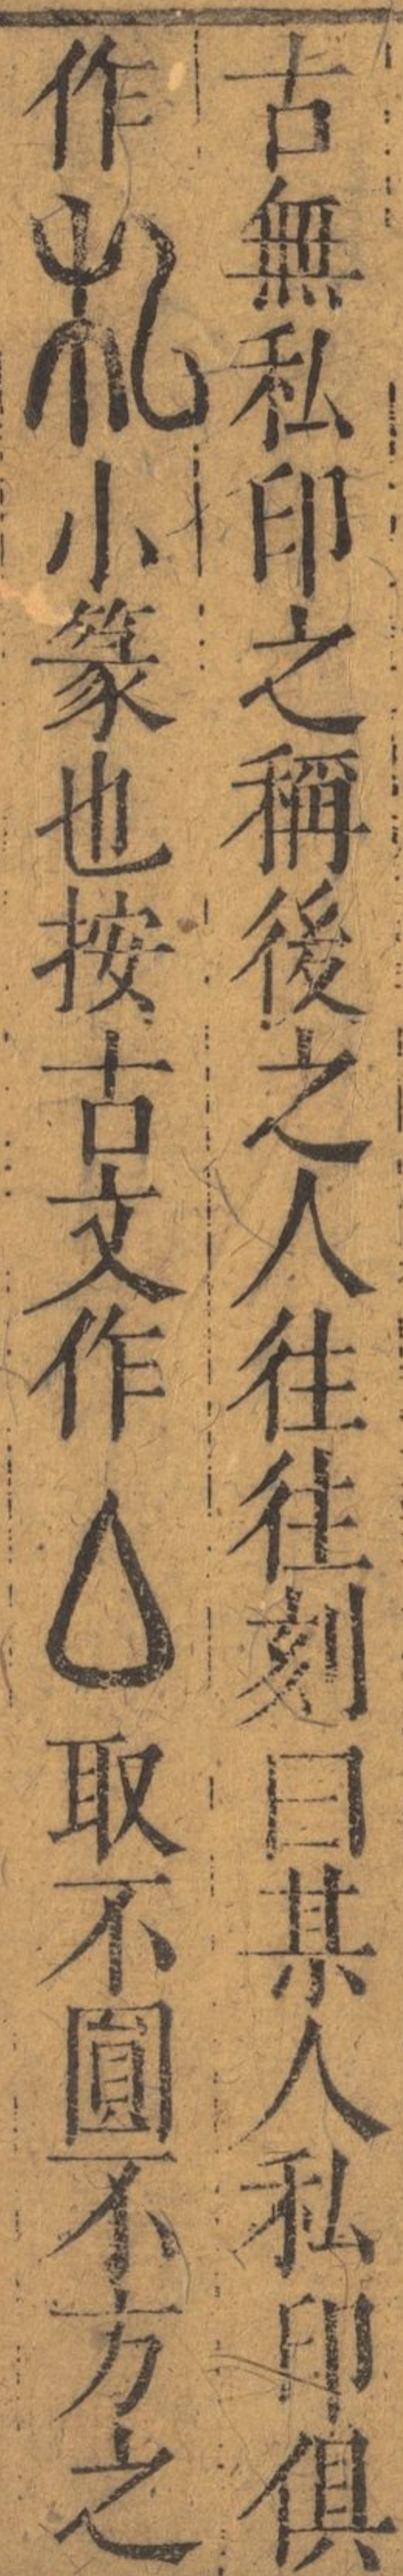 古無私印之稱後之人往往刻曰某人私印俱
作私小篆也按古文作厶取不圓不方之